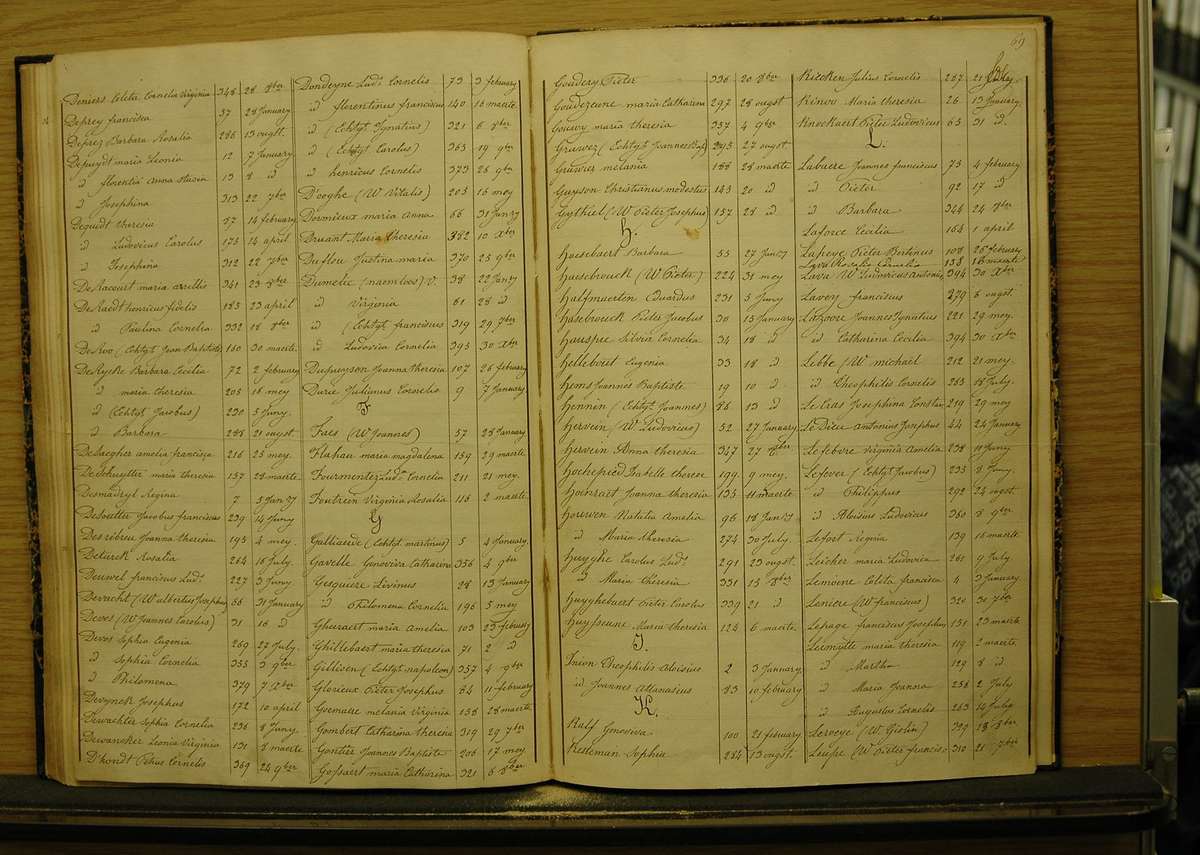 Deniers Coleta Cornelia Virginia 348 28 8ber
Deprey francisca 37 28 January
Deprez Barbara Rosalia 286 13 augst.
Depuydt maria Leonia 12 7 January
id florentia Anna stasia 13 8 id
id Josephina 313 22 7ber
Dequidt theresia 87 14 february
id Ludovicus Carolus 175 14 april
id Josephina 312 22 7ber
De Racourt maria 341 23 8ber
De Raedt henricus fidelis 183 23 april
id Paulina Cornelia 332 18 8ber
De Roo (Echtgt. Jean Baptiste) 150 30 maerte
De Rycke Barbara Cecilia 72 2 february
id maria theresia 205 16 mey
id (Echtgt Jacobus) 230 5 Juny
id Barbara 288 21 augst.
De Saegher amelia francisca 216 25 mey.
De Schuytter maria theresia 157 28 maerte
Desmadryl Regina 7 5 Jan 27
De Soutter Jacobus franciscus 239 14 Juny
Desrebreu Joanna theresia 195 4 mey.
Deturck Rosalia 264 16 July
Deuwel franciscus Luds. 227 3 Juny
Devacht (W albertus Josephus) 66 31 January
Deves (W Joannes Carolus) 31 16 id
Devos Sophia Eugenia 269 22 July.
id Sophia Cornelia 355 3 9ber
id Philomena 379 7 Xber
Devynck Josephus 172 10 april
Dewachter Sophia Cornelia 236 8 Juny
Dewancker Leonia Virginia 131 8 maerte
D'hondt Petrus Cornelis 369 24 9ber
Dondeyne Luds. Cornelis 73 3 february
id florentinus franciscus 140 16 maerte
id (Echtgt Ignatius) 321 6 8ber
id (Echtgt Carolus) 363 19 9ber
id henricus Cornelis 373 25 9ber
D'ooghe (W Vitalis) 203 15 mey
Dormieux maria Anna 66 31 Jan 27
Druant Maria theresia 382 10 Xber
Duflou Justina maria 370 25 9ber
Dumelie (naemloos) V. 38 22 Jan 27
id Virginia 61 28 id
id (Echtgt. franciscus 319 29 7ber
id Ludovica Cornelia 395 30 Xber
Dupuyson Joanna theresia 107 26 february
Durie Julianus Cornelis 9 7 January
F
Faes (W Joannes) 57 28 January
Flahau maria magdalena 159 29 maerte
Fourmentier Luda. Cornelia 211 21 mey.
Foutrein Virginia Rosalia 116 2 maerte
G
Galliaerde (Echtgt. martinus) 5 4 January
Gavelle Genoviva Catharina 356 4 9ber
Gesquiere Livinus 28 13 January
id Philomena Cornelia 196 5 mey
Gheeraert maria Amelia 103 25 february
Ghillebaert maria theresia 71 2 id
Gillioen (Echtgt. napoleon) 357 4 9ber
Glorieux Pieter Josephus 84 11 february
Goemaere melania Virginia 158 28 maerte
Gombert Catharina therese 319 29 7ber
Gontier Joannes Baptiste 206 17 mey
Gossaert maria Catharina 321 6 8ber
69
Goudery Pieter 336 20 8ber
Goudezeune maria Catharina 292 28 augst
Gousoy maria theresia 357 4 9ber
Gruwez (Echtgt Joannes Bap) 293 27 augst
Gruwier melania 188 28 maerte
Guyson Christianus modestus 143 20 id
Gytkiel (W Pieter Josephus) 157 28 id
H.
Haesebaert Barbara 55 27 Jan 27
haesebrouck (W Pieter) 224 31 mey
halfmaerten Eduardus 231 5 Juny
hasebrouck Pieter Jacobus 30 15 January
hauspie Silvia Cornelia 34 18 id
hellebout Eugenia 33 18 id
hems Joannes Baptiste 19 10 id
hennin (Echtgt. Joannes) 26 13 id
hervein (W Ludovicus) 52 27 January
hervein Anna theresia 347 27 8ber
hochepied Isabelle therese 199 9 mey.
hoinraet Joanna theresia 135 11 maerte
houwen Natalia Amelia 96 18 Jan 27
id Maria theresia 274 30 July.
huyghe Carolus Luds. 291 23 augst.
id Maria theresia 331 15 8ber
huyghebaert Pieter Carolus 339 21 id
huyseune Maria theresia 124 6 maerte
I.
Inion Theophilis Aloisius 2 3 January
id Joannes Athanasius 83 10 february
K.
Kalf Genoviva 100 21 february
Kesteman Sophia 284 13 augst.
Kiecken Julius Cornelis 257 21 July
Kinou Maria theresia 26 13 January
Knockaert Pieter Ludovicus 65 31 id
L.
Labaere Joannes franciscus 75 4 february
id Pieter 92 17 id
id Barbara 344 24 8ber
Laforce Cecilia 164 1 april
Laheye Pieter Bertinus 108 26 february
Lava Rosalia Amelia 138 16 maerte
Lava (W Ludovicus Antonius) 394 30 Xber
Laveny franciscus 279 6 augst.
Lazoore Joannes Ignatius 221 29 mey.
id Catharina Cecilia 394 30 Xber
Lebbe (W michael 212 21 mey.
id Theophilis Cornelis 253 18 July.
Le Cras Josephina Constan 219 29 mey
Le Dieu antonius Josephus 44 24 January
Lefebvre Virginia Amelia 238 11 Juny
Lefever (Echtgt Jacobus) 235 8 Juny.
id Philippus 292 24 augst.
id Aloisius Ludovicus 360 8 9ber
Lefort Regina 139 16 maerte
Leicher maria Ludovica 261 9 July
Lemoene Coleta francisca 4 3 January
Leniere (W franciscus) 320 30 7ber
Lepage franciscus Josephus 151 23 maerte
Lermytte maria theresia 119 2 maerte
id Martha 129 8 id
id Maria Joanna 256 2 July
id Augustus Cornelis 263 14 July
Leroeye (W. Gislin) 327 13 8ber
Leupe (W Pieter francisc 310 21 7ber